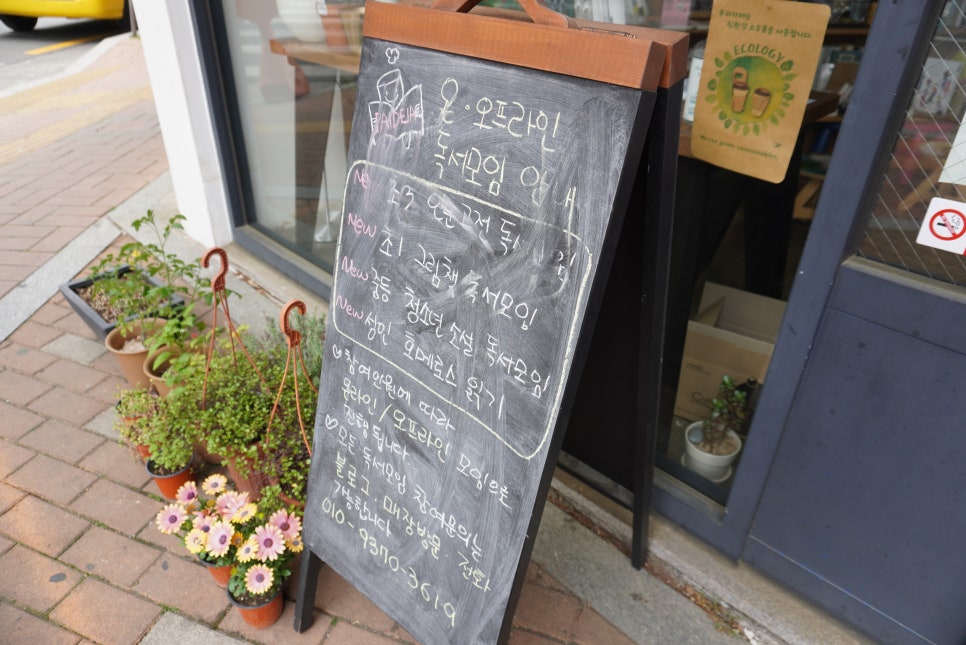 PAIDEIA
온·오프라인
독서모임 안내
New 초3 모임
New 초1 그림책 독서모임
New 중등 청소년 소설 독서모임
New 성인 호메로스 읽기
♡참여인원에 따라
온라인/오프라인 모임으로
진행됩니다
♡모든 독서모임 참여문의는
블로그 매장방문 전화
가능합니다
010-9370-3619
친환경 소모품을 사용합니다.
ECOLOGY